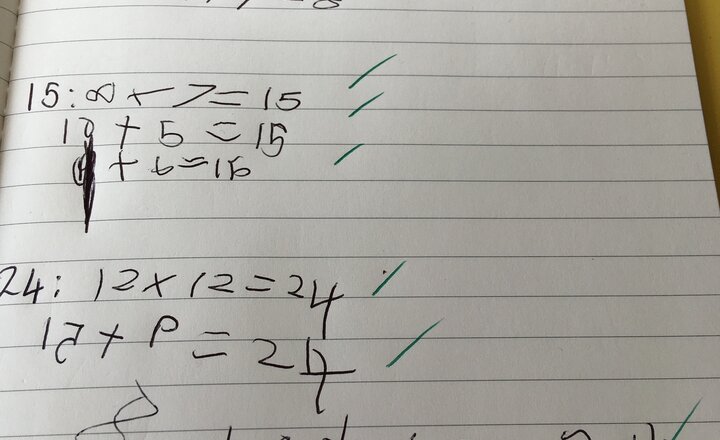 15: 8 + 7 = 15
10 + 5 = 15
9 + 6 = 15
24: 12 + 12 = 24
15 + 9 = 24